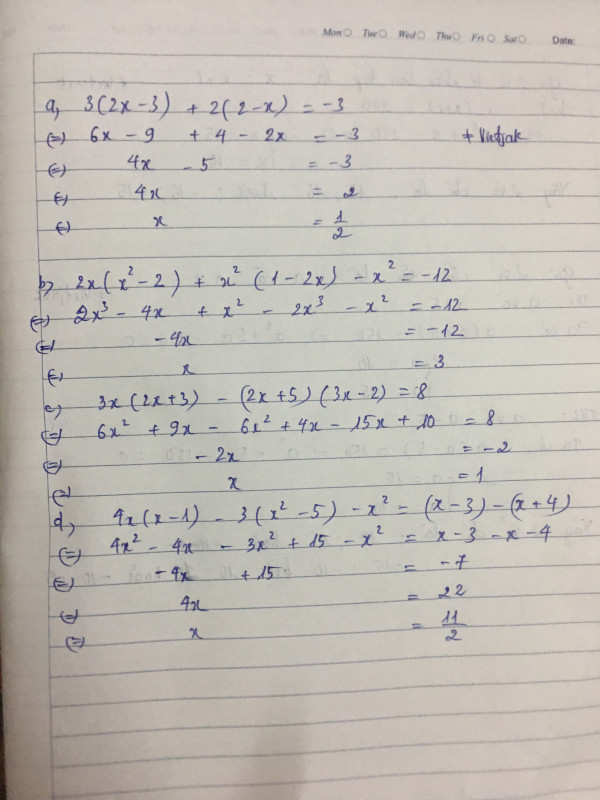 Mon Tue Wed Thu Fri Sat Date:
a, 3(2x-3) + 2(2-x) = -3
(=) 6x - 9 + 4 - 2x = -3
(=) 4x - 5 = -3
(=) 4x = 2
(=) x = 1/2
b, 2x(x² - 2) + x² (1 - 2x) - x² = -12
(=) 2x³ - 4x + x² - 2x³ - x² = -12
(=) -4x = -12
(=) x = 3
c, 3x(2x+3) - (2x+5)(3x-2) = 8
(=) 6x² + 9x - 6x² + 4x - 15x + 10 = 8
(=) -2x = -2
(=) x = 1
d, 4x(x-1) - 3(x² - 5) - x² = (x-3) - (x+4)
(=) 4x² - 4x - 3x² + 15 - x² = x - 3 - x - 4
(=) -4x + 15 = -7
(=) 4x = 22
(=) x = 11/2